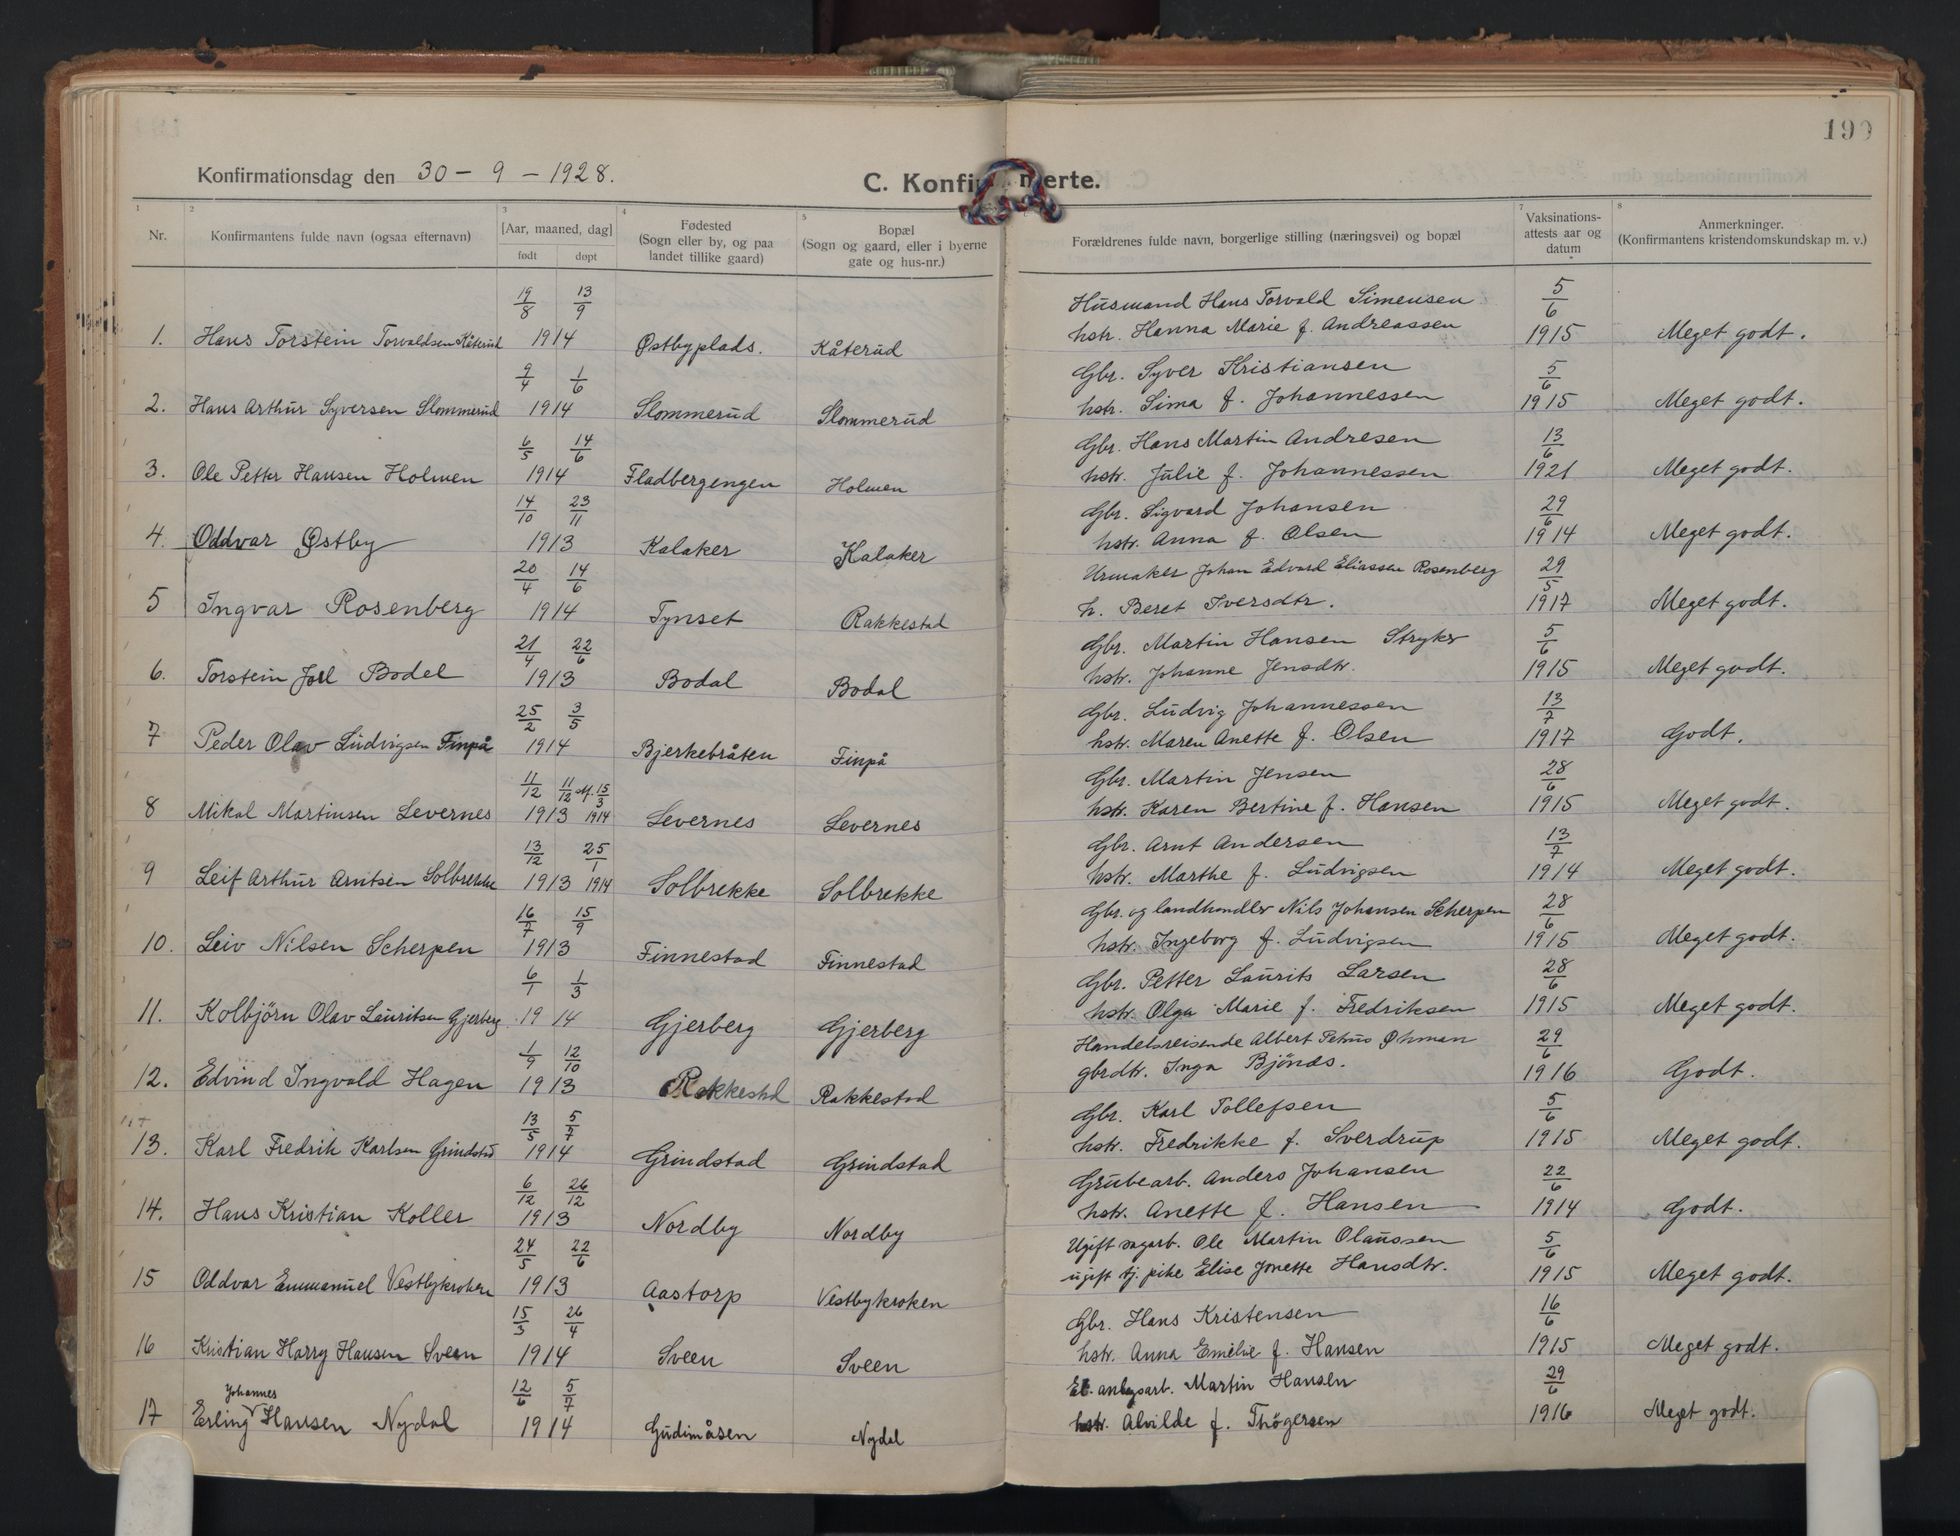 190
Konfirmationsdag den 30 - 9 - 1928.
C. Konfir merte.
1 2 3 4 5 7 8
Nr. Konfirmantens fulde navn (ogsaa efternavn) [Aar, maaned, dag] født døpt Fødested (Sogn eller by, og paa landet tillike gaard) Bopæl (Sogn og gaard, eller i byerne gate og hus-nr.) Forældrenes fulde navn, borgerlige stilling (næringsvei) og bopæl Vaksinations-attests aar og datum Anmerkninger. (Konfirmantens kristendomskundskap m. v.)
19/8 13/9 Husmand Hans Torvald Simensen 5/6
1. Hans Torstein Torvaldsen Kåterud 1914 Østbyplads. Kåterud hstr. Hanna Marie f. Andreassen 1915 Meget godt.
9/4 1/6 Gbr. Syver Kristiansen 5/6
2. Hans Arthur Syversen Slommerud 1914 Slommerud Slommerud hstr. Sima f. Johannessen 1915 Meget godt.
6/5 14/6 Gbr. Hans Martin Andresen 13/6
3. Ole Petter Hansen Holmen 1914 Fladbergengen Holmen hstr. Julie f. Johannessen 1921 Meget godt.
14/10 23/11 Gbr. Sigvard Johansen 29/6
4. Oddvar Østby 1913 Kalaker Kalaker hstr. Anna f. Olsen 1914 Meget godt.
20/4 14/6 Urmaker Johan Edvard Eliassen Rosenberg 29/5
5 Ingvar Rosenberg 1914 Tynset Rakkestad h. Beret Iversdtr. 1917 Meget godt.
21/4 22/6 Gbr. Martin Hansen Stryker 5/6
6. Torstein Joel Bodel 1913 Bodal Bodal hstr. Johanne Jensdtr. 1915 Meget godt.
25/2 3/5 Gbr. Ludvig Johannessen 13/7
7 Peder Olav Ludvigsen Finpå 1914 Bjerkebråten Finpå hstr. Maren Anette f. Olsen 1917 Godt.
11/12 11/12 st. 15/3 Gbr. Martin Jensen 28/6
8 Mikal Martinsen Levernes 1913 1914 Levernes Levernes hstr. Karen Bertine f. Hansen 1915 Meget godt.
13/12 25/1 Gbr. Arnt Andersen 13/7
9 Leif Arthur Arntsen Solbrekke 1913 1914 Solbrekke Solbrekke hstr. Marthe f. Ludvigsen 1914 Meget godt.
16/7 15/9 Gbr. og landhandler Nils Johansen Scherpen 28/6
10. Leiv Nilsen Scherpen 1913 Finnestad Finnestad hstr. Ingeborg f. Ludvigsen 1915 Meget godt.
6/1 1/3 Gbr. Petter Laurits Larsen 28/6
11. Kolbjörn Olav Lauritsen Gjerberg 1914 Gjerberg Gjerberg hstr. Olga Marie f. Fredriksen 1915 Meget godt.
1/9 12/10 Handelsreisende Albert Petrus Øhman 29/6
12. Edvind Ingvald Hagen 1913 Rakkestad Rakkestad gbrdtr. Inga Bjönæs. 1916 Godt.
13/5 5/7 Gbr. Karl Tollefsen 5/6
13. Karl Fredrik Karlsen Grindstad 1914 Grindstad Grindstad hstr. Fredrikke f. Sverdrup 1915 Meget godt.
6/12 26/12 Grubearb. Anders Johansen 22/6
14. Hans Kristian Koller 1913 Nordby Nordby hstr. Anette f. Hansen 1914 Godt.
24/5 22/6 Ugift sagarb. Ole Martin Olaussen 5/6
15 Oddvar Emmanuel Vestbykroken 1913 Aastorp Vestbykroken ugift tj. pike Elise Jonette Hansdtr. 1915 Meget godt.
15/3 26/4 Gbr. Hans Kristensen 16/6
16 Kristian Harry Hansen Sveen 1914 Sveen Sveen hstr. Anna Emelie f. Hansen 1915 Meget godt.
12/6 5/7 El. anlegsarb. Martin Hansen 29/6
17 Erling Johannes Hansen Nydal 1914 Gudimåsen Nydal hstr. Alvilde f. Thögersen 1916 Meget godt.